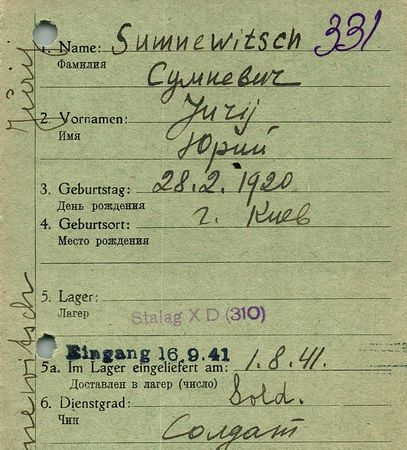 1. Name: Sumnewitsch 331
Фамилия Сумневич
2. Vornamen: Jurij
Имя Юрий
3. Geburtstag: 28.2.1920
День рождения
4. Geburtsort: г. Киев
Место рождения
5. Lager: Stalag X D (310)
Лагерь
Eingang 16.9.41
5a. Im Lager eingeliefert am: 1.8.41.
Доставлен в лагер (число)
6. Dienstgrad: Sold.
Чин Солдат
Jurij
newitsch